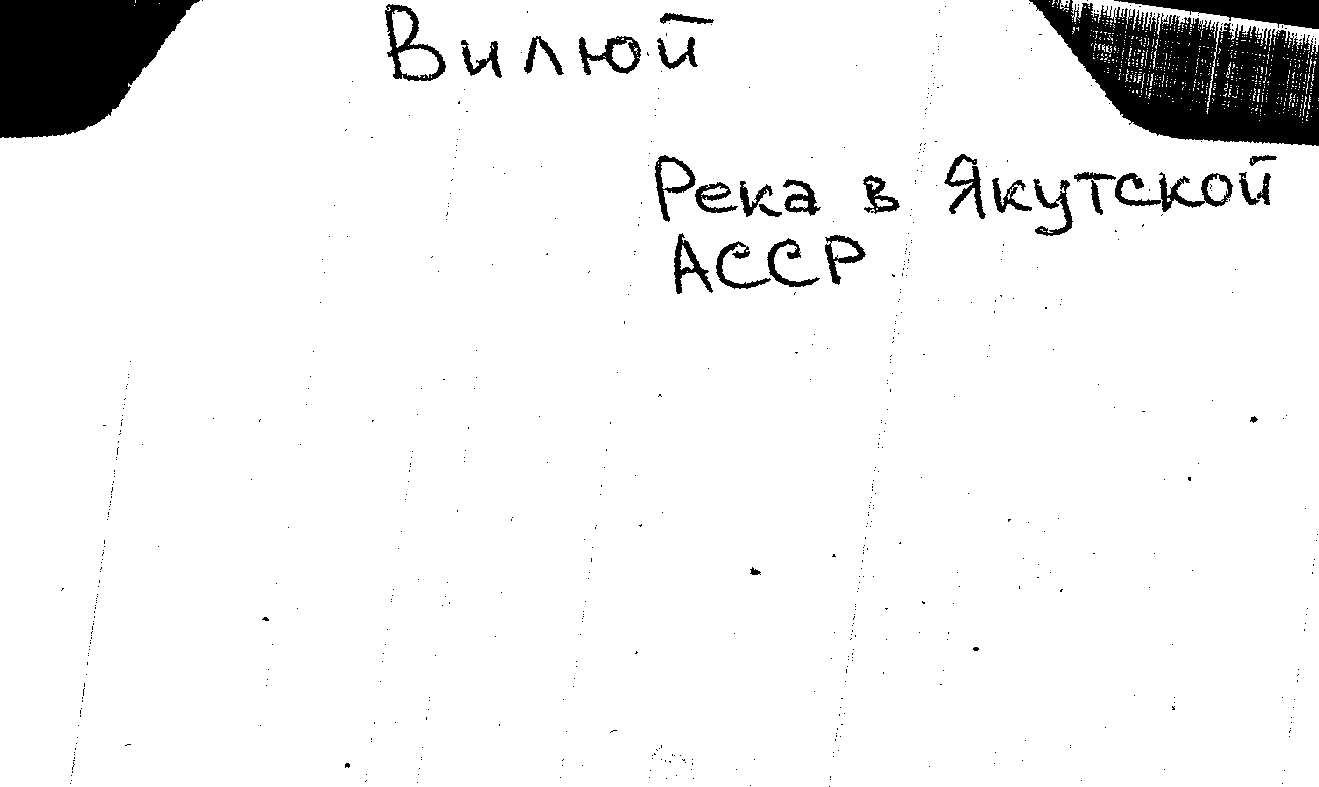 Вилюй
Река в Якутской
АССР